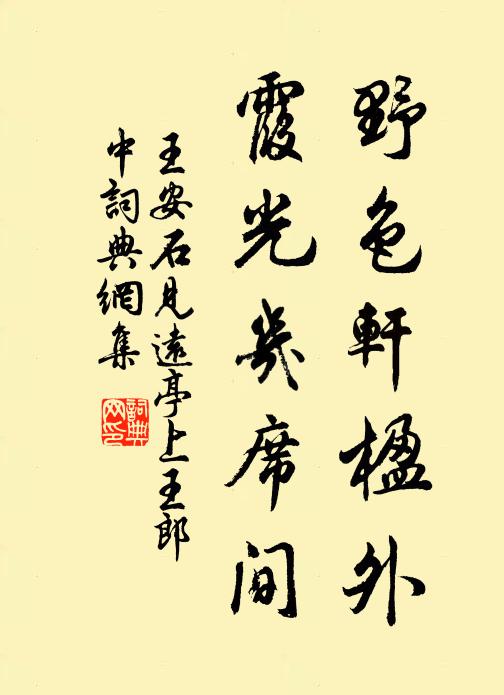 野色軒楹外
霞光幾席間
王安石見遠亭上王郎
中詞典網集
詞典
网印